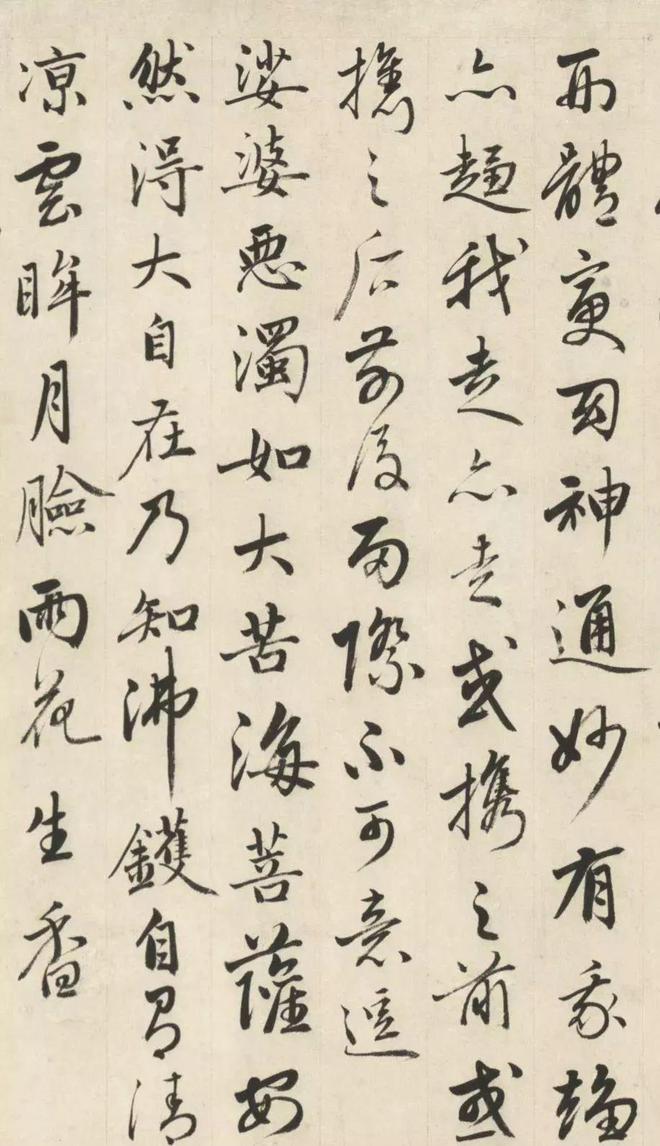 而體神通妙有我趨
亦趨我走亦走或攜之前或
攜之后前後兩際不可意逗
娑婆惡濁如大苦海菩薩安
然得大自在乃知沸鑊自有清
凉雲眸月臉雨花生香